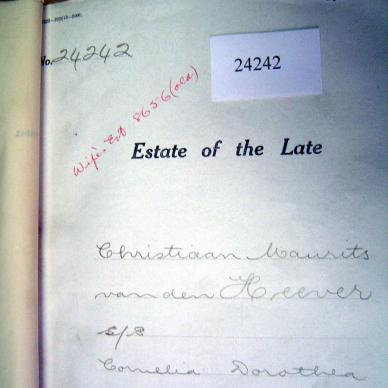 No. 24242
24242
Wife's Est 8656 (old)
Estate of the Late
Christiaan Maurits
van den Heever
s/s
Cornelia Dorothea